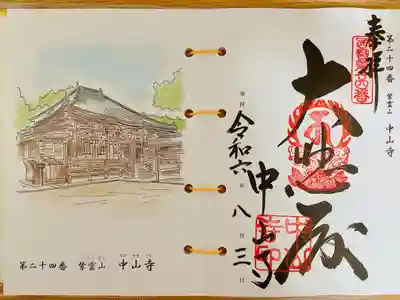 第二十四番 紫雲山 中山寺
奉拝
大悲殿
中山寺
令和六年八月三日
第二十四番 紫雲山 中山寺